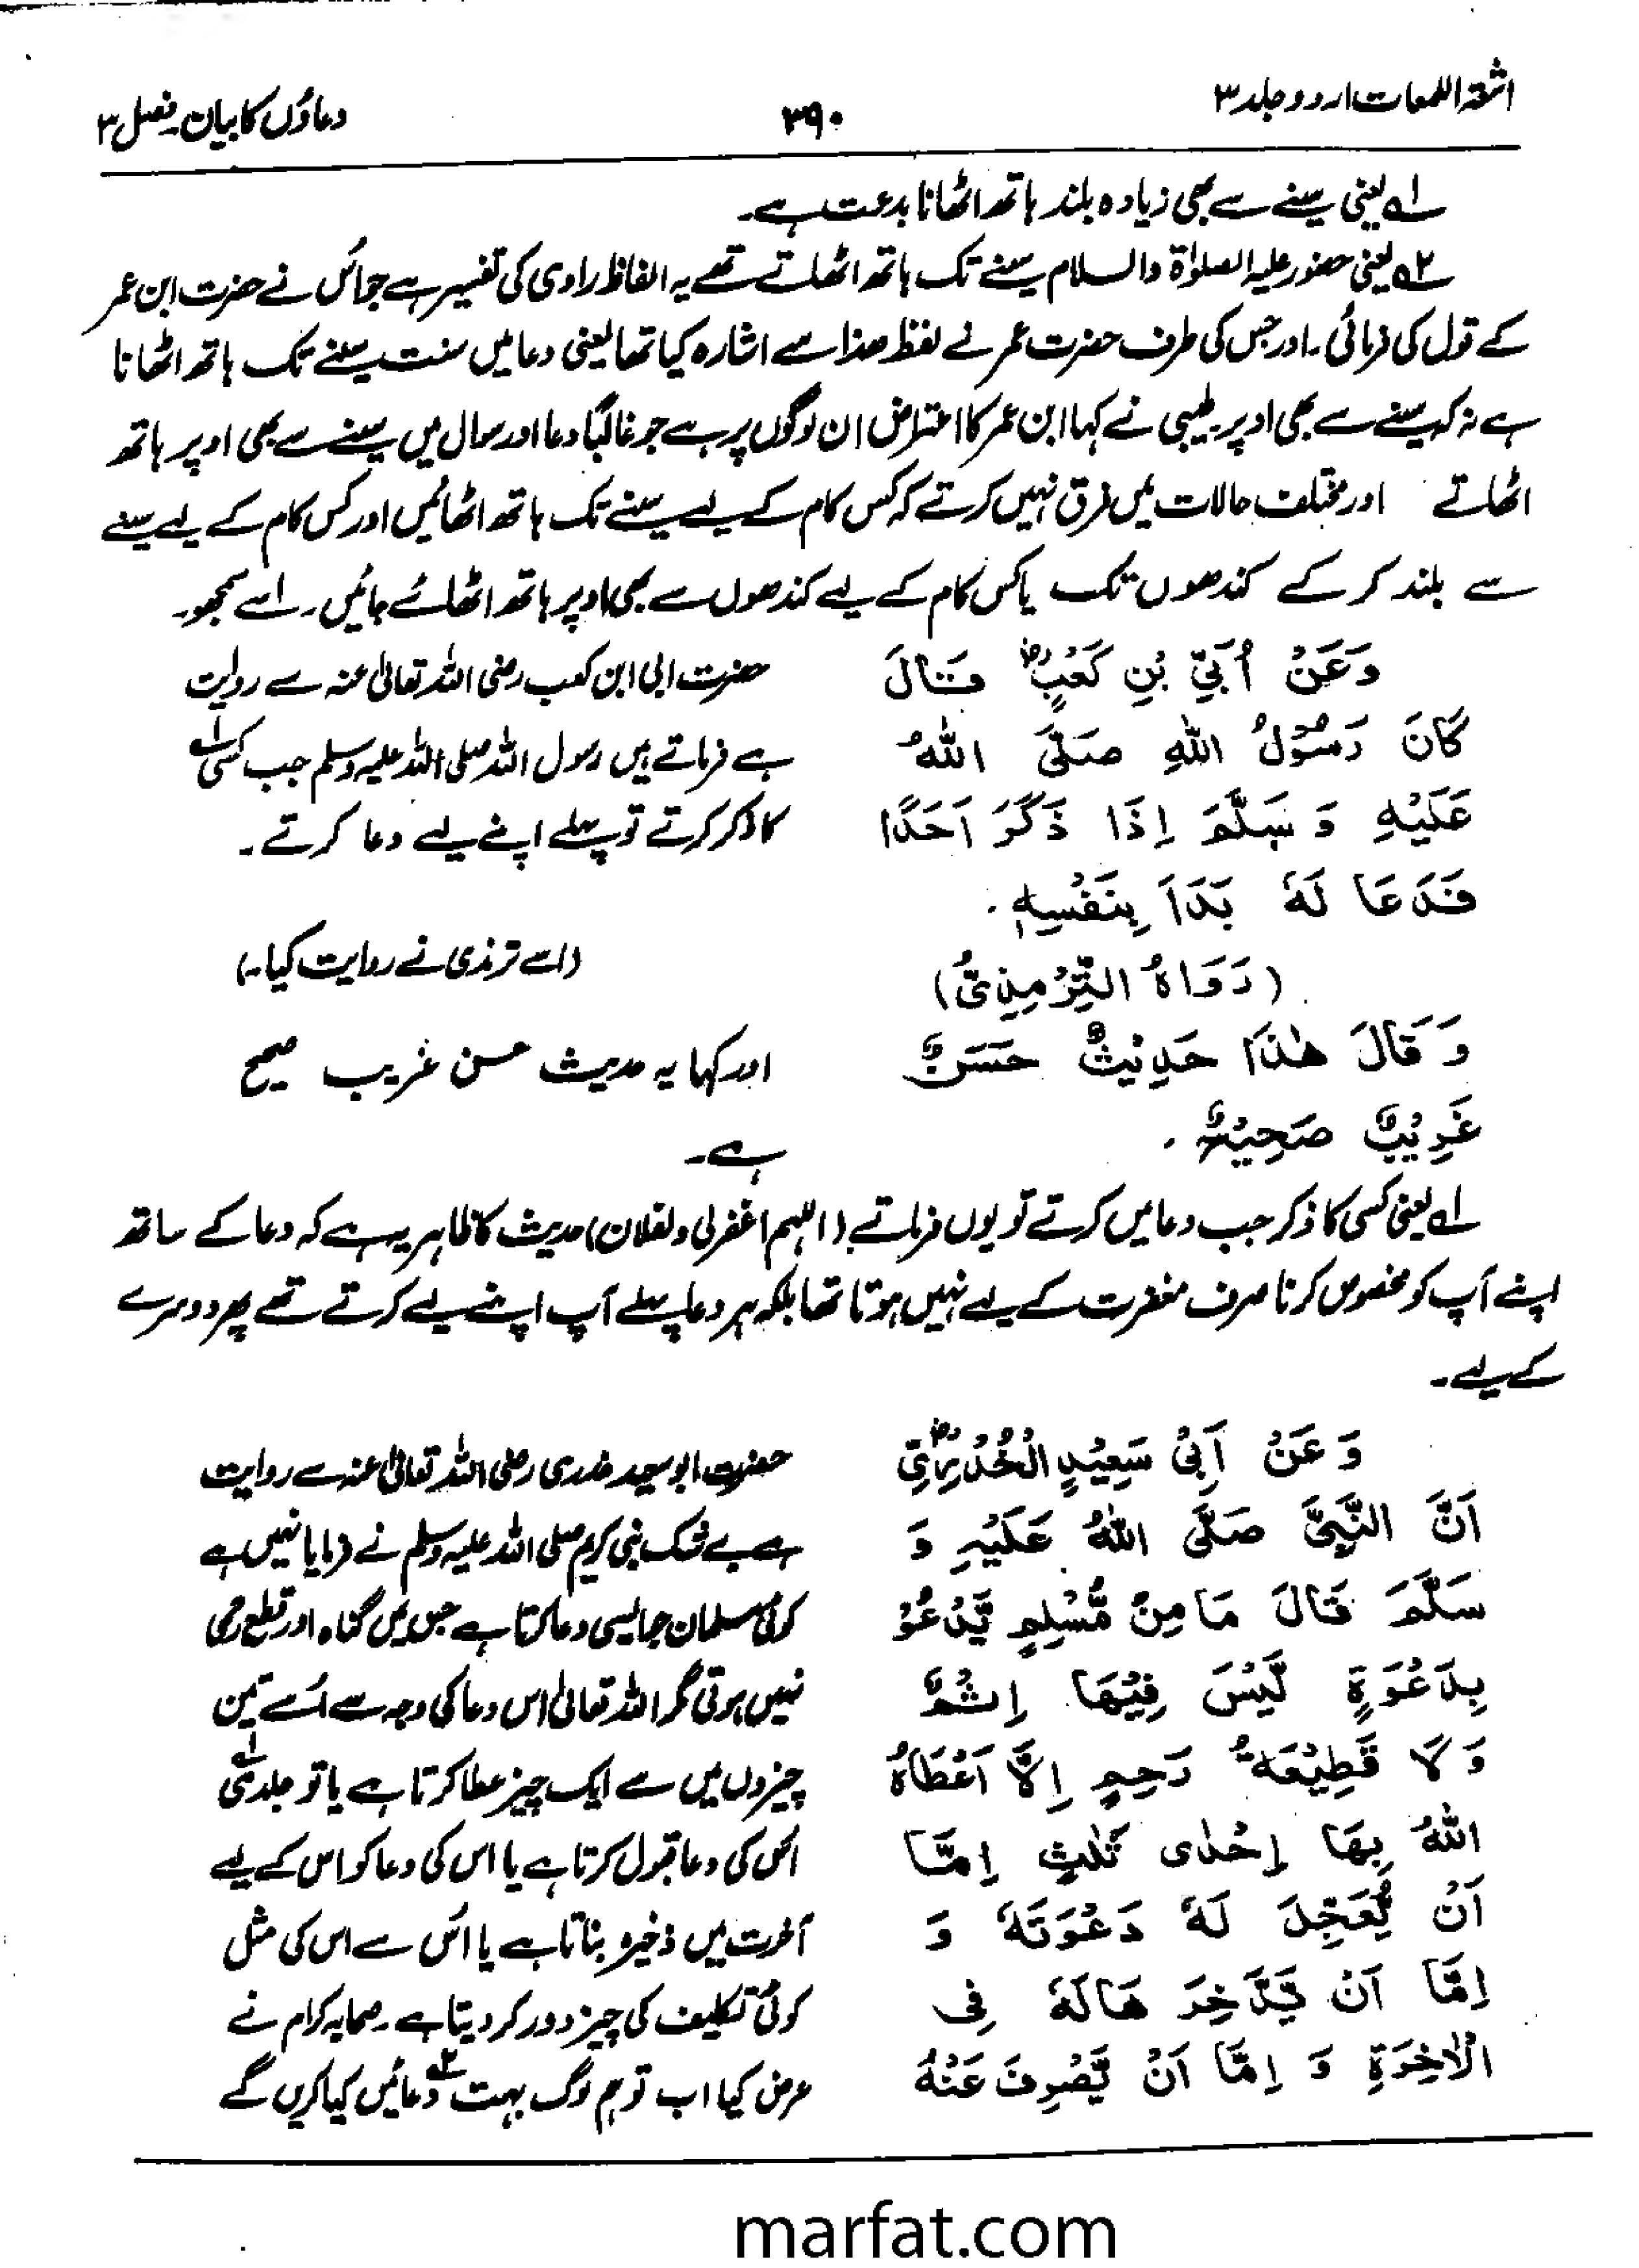 اشعۃ اللمعات اردو جلد ۳
۳۹۰
دعاؤں کا بیان۔ فصل ۳
۱ے یعنی سینے سے بھی زیادہ بلند ہاتھ اٹھانا بدعت ہے۔
۲ے یعنی حضور علیہ الصلوٰۃ والسلام سینے تک ہاتھ اٹھاتے تھے یہ الفاظ راوی کی تفسیر ہے جو اُس نے حضرت ابن عمر
کے قول کی فرمائی۔ اور جس کی طرف حضرت عمر نے لفظ ھذا سے اشارہ کیا تھا یعنی دعا میں سنت سینے تک ہاتھ اٹھانا
ہے نہ کہ سینے سے بھی اوپر طیبی نے کہا ابن عمر کا اعتراض ان لوگوں پر ہے جو غالباً دعا اور سوال میں سینے سے بھی اوپر ہاتھ
اٹھاتے اور مختلف حالات میں فرق نہیں کرتے کہ کس کام کے لیے سینے تک ہاتھ اٹھائیں اور کس کام کے لیے سینے
سے بلند کر کے کندھوں تک یا کس کام کے لیے کندھوں سے بھی اوپر ہاتھ اٹھائے جائیں۔ اسے سمجھو۔
وَعَنْ اُبَيِّ بْنِ كَعْبٍ رض قَالَ
كَانَ رَسُوْلُ اللهِ صَلَّى اللهُ
عَلَيْهِ وَ سَلَّمَ اِذَا ذَكَرَ اَحَدًا
فَدَعَا لَهٗ بَدَاَ بِنَفْسِهٖ.
(رَوَاهُ التِّرْمِذِىُّ)
وَ قَالَ هٰذَا حَدِيْثٌ حَسَنٌ
غَرِيْبٌ صَحِيْحٌ.
حضرت ابی ابن کعب رضی اللہ تعالیٰ عنہ سے روایت
ہے فرماتے ہیں رسول اللہ صلی اللہ علیہ وسلم جب کسی ۱ے
کا ذکر کرتے تو پہلے اپنے لیے دعا کرتے۔
(اسے ترمذی نے روایت کیا۔)
اور کہا یہ حدیث حسن غریب صحیح
ہے۔
۱ے یعنی کسی کا ذکر جب دعا میں کرتے تو یوں فرماتے (اللہم اغفرلی ولفلان) حدیث کا ظاہر یہ ہے کہ دعا کے ساتھ
اپنے آپ کو مخصوص کرنا صرف مغفرت کے لیے نہیں ہوتا تھا بلکہ ہر دعا پہلے آپ اپنے لیے کرتے تھے پھر دوسرے
کے لیے۔
وَ عَنْ اَبِىْ سَعِيْدِ الْخُدْرِيِّ رض
اَنَّ النَّبِىَّ صَلَّى اللهُ عَلَيْهِ وَ
سَلَّمَ قَالَ مَا مِنْ مُّسْلِمٍ يَّدْعُوْ
بِدَعْوَةٍ لَّيْسَ فِيْهَا اِثْمٌ
وَ لَا قَطِيْعَةُ رَحِمٍ اِلَّا اَعْطَاهُ
اللهُ بِهَا اِحْدٰى ثَلٰثٍ اِمَّا
اَنْ يُّعَجِّلَ لَهٗ دَعْوَتَهٗ وَ
اِمَّا اَنْ يَّدَّخِرَ هَا لَهٗ فِى
الْاٰخِرَةِ وَ اِمَّا اَنْ يَّصْرِفَ عَنْهُ
حضرت ابو سعید خدری رضی اللہ تعالیٰ عنہ سے روایت
ہے بے شک نبی کریم صلی اللہ علیہ وسلم نے فرمایا نہیں ہے
کوئی مسلمان جو ایسی دعا کرتا ہے جس میں گناہ اور قطع رحمی
نہیں ہوتی مگر اللہ تعالیٰ اس دعا کی وجہ سے اُسے تین
چیزوں میں سے ایک چیز عطا کرتا ہے یا تو جلدی ۱ے
اُس کی دعا قبول کرتا ہے یا اس کی دعا کو اس کے لیے
آخرت میں ذخیرہ بناتا ہے یا اُس سے اس کی مثل
کوئی تکلیف کی چیز دور کر دیتا ہے۔ صحابہ کرام نے
عرض کیا اب تو ہم لوگ بہت ۲ے دعائیں کیا کریں گے
marfat.com